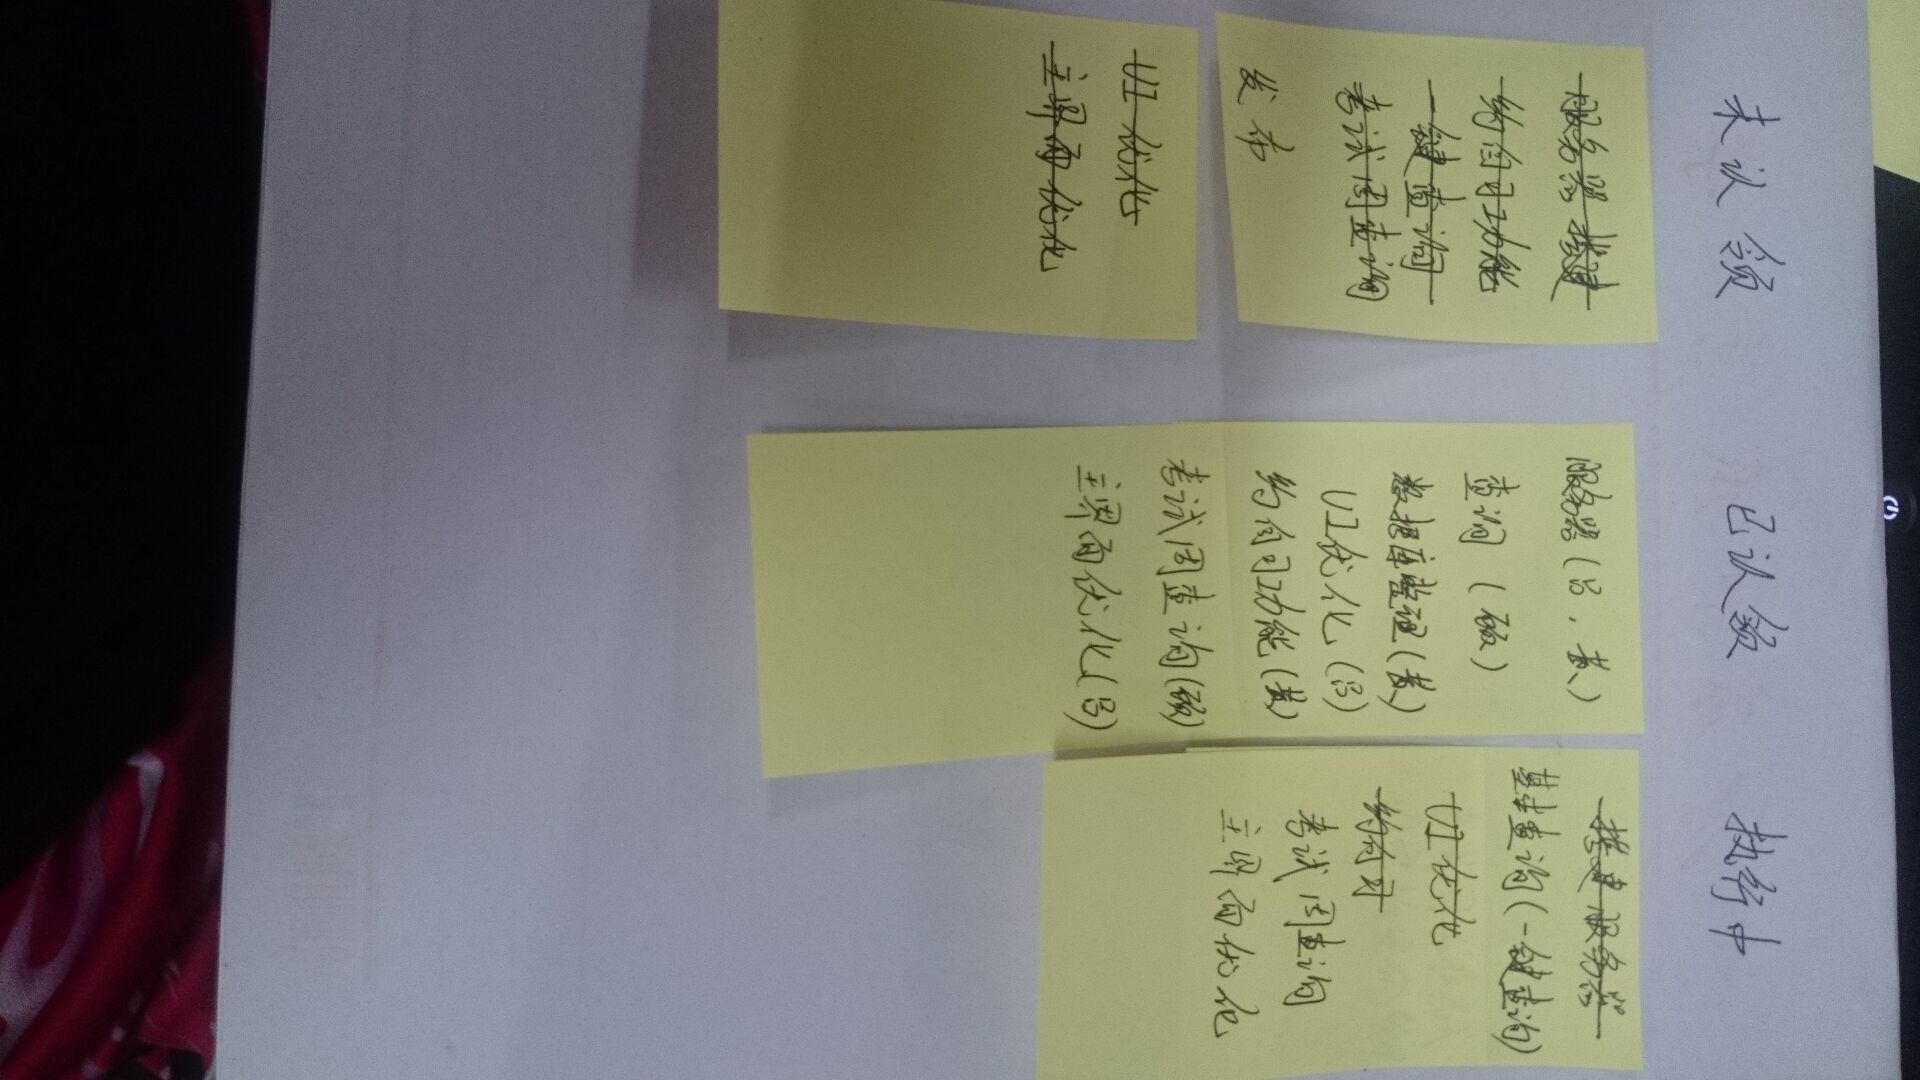 未认领
服务器搭建
约自习功能
一键查询
考试周查询
发布
UI优化
主界面优化
已认领
服务器(吕，黄)
查询(硕)
数据库验证(黄)
UI优化(吕)
约自习功能(黄)
考试周查询(硕)
主界面优化(吕)
执行中
搭建服务器
其它查询(一键查询)
UI优化
约自习
考试周查询
主界面优化